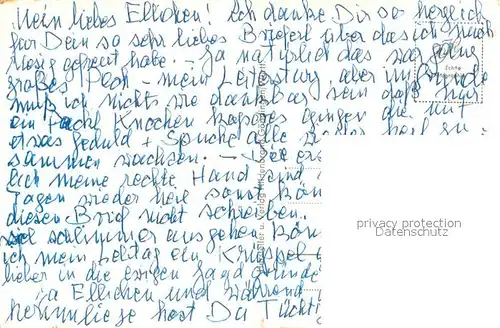 Mein liebes Ellichen! Ich danke Dir so herzlich
für Dein so sehr liebes Brieferl über das ich mich
riesig gefreut habe. - Ja natürlich das war ganz
großes Pech - mein Leitersturz, aber im Grunde
muß ich nichts wie dankbar sein daß nur
ein Knochen kaputt gingen die mit
etwas Geduld + Spucke alle wieder heil zu-
sammen wachsen. -
lich meine rechte Hand sind
Tagen wieder heil sonst kön
diesen Brief nicht schreiben.
viel schlimmer ausgehen kön
ich mein Lebtag ein Krüppel
lieber in die ewigen Jagdgründe
Ja Ellichen und während
herumliege hast Du Tüchti
Echte
privacy protection
Datenschutz